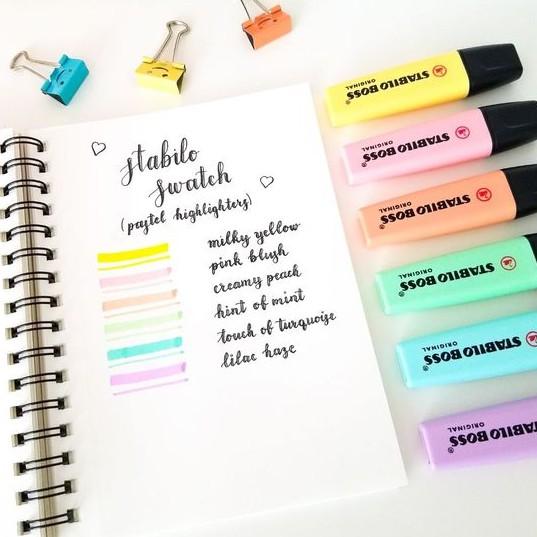 stabilo
swatch
(pastel highlighters)
milky yellow
pink blush
creamy peach
hint of mint
touch of turquoise
lilac haze
STABILO BOSS®
ORIGINAL
STABILO BOSS®
ORIGINAL
STABILO BOSS®
ORIGINAL
STABILO BOSS®
ORIGINAL
STABILO BOSS®
ORIGINAL
STABILO BOSS®
ORIGINAL